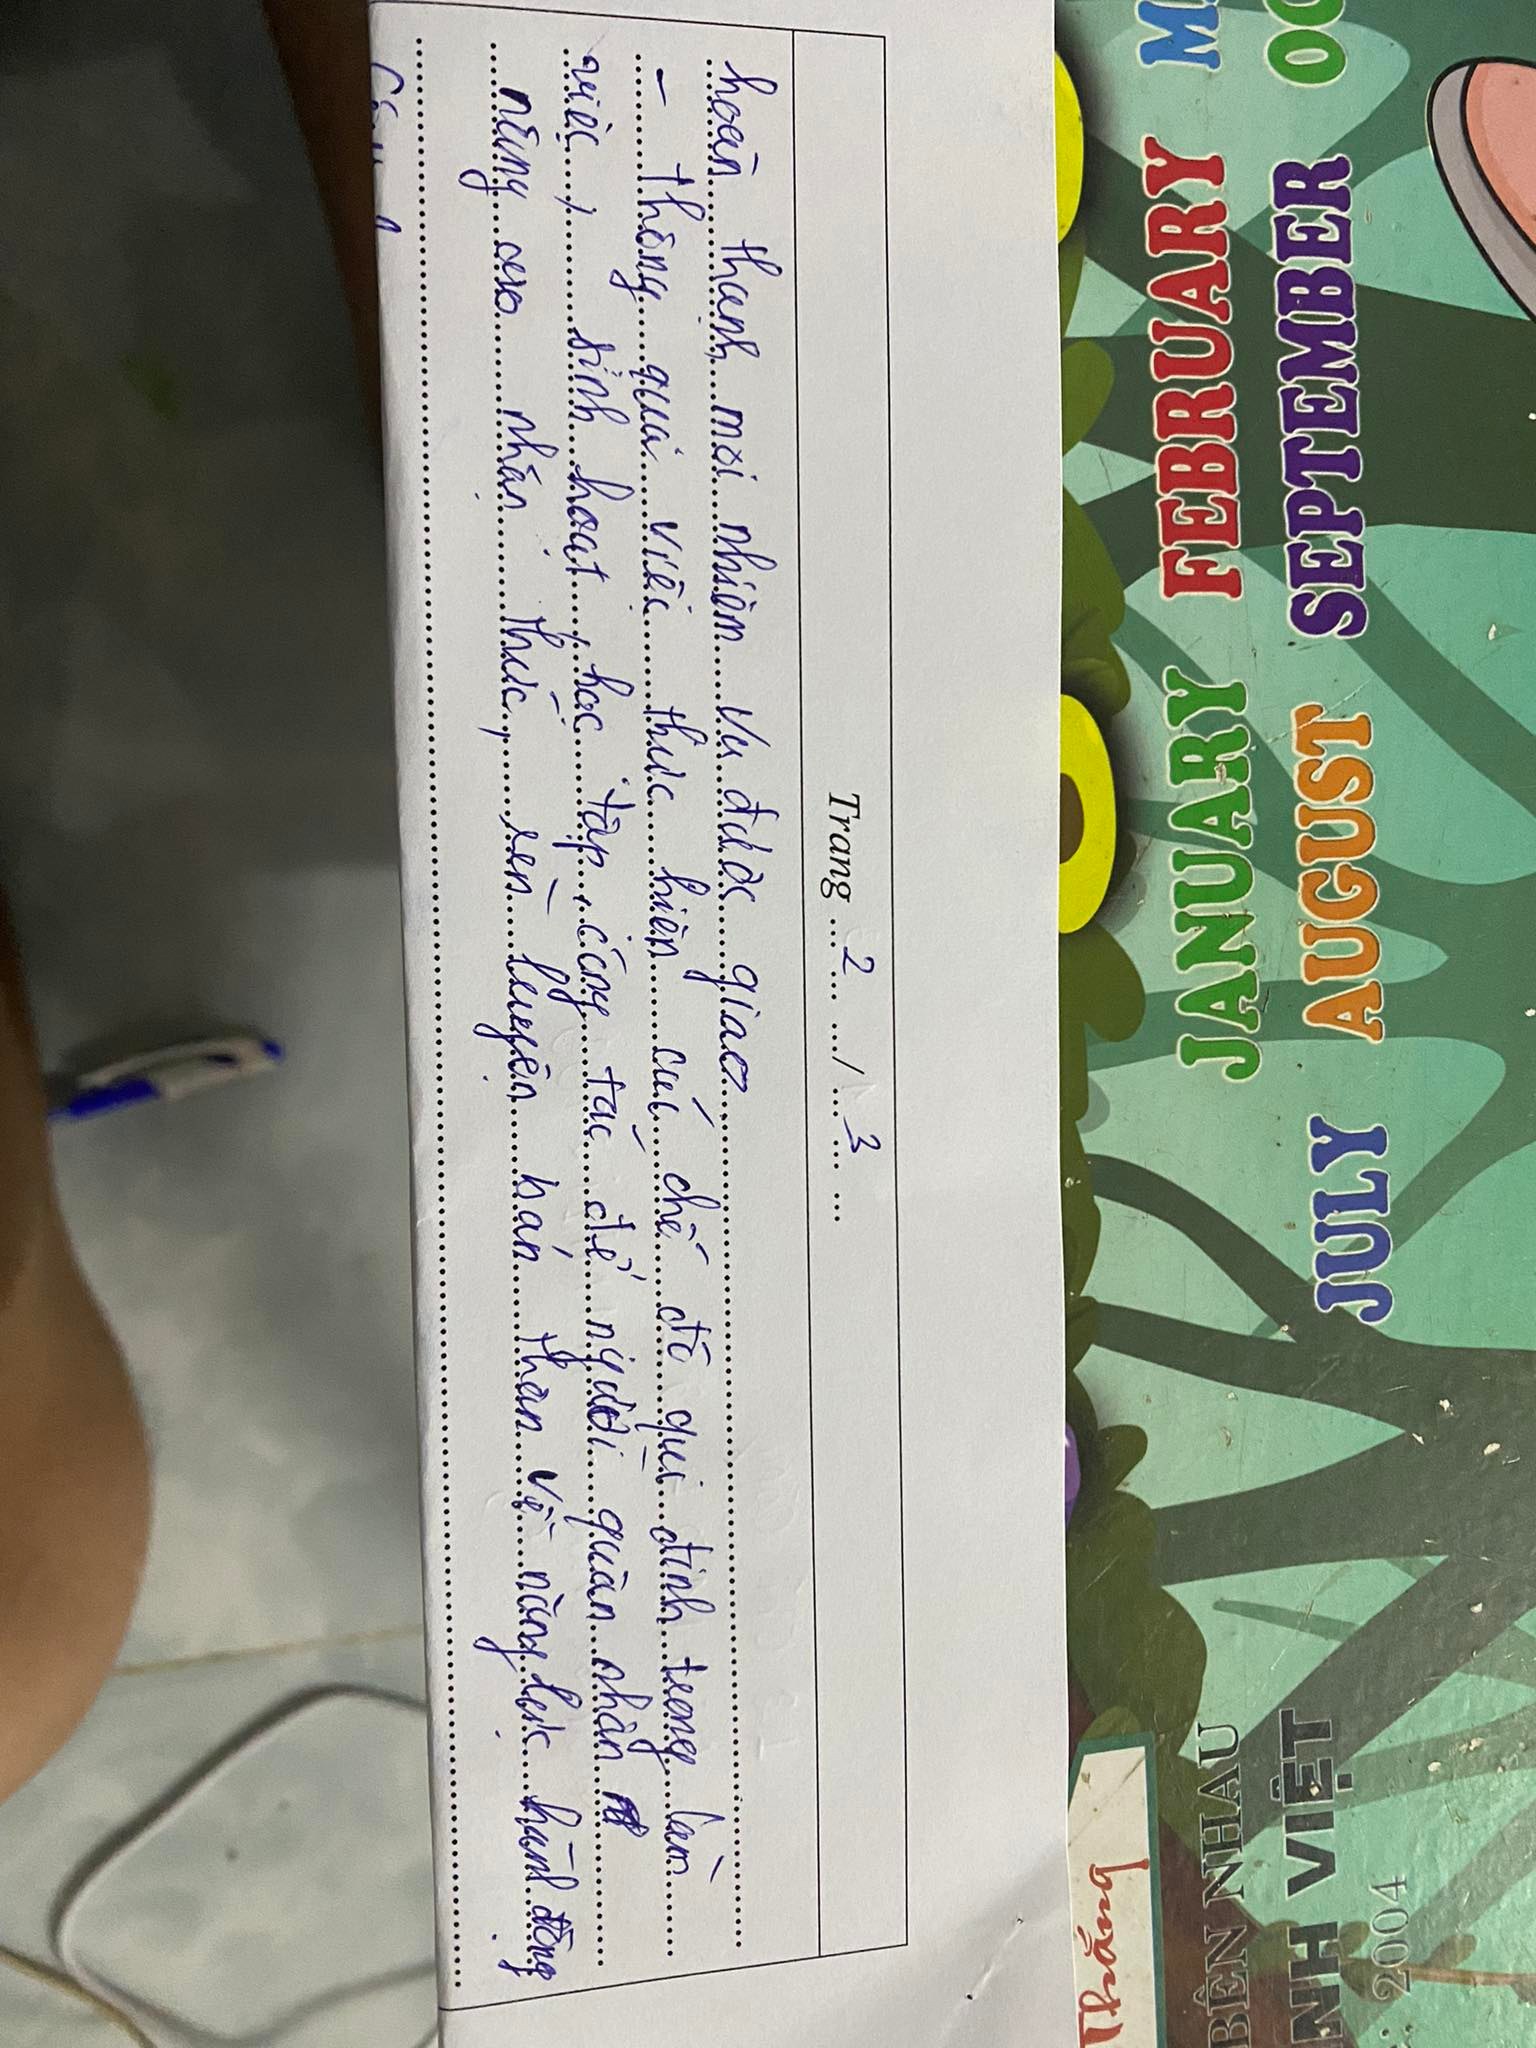 OC SEPTEMBER AUGUST JULY
FEBRUARY JANUARY
2004
NH VIỆT
BÊN NHAU
Thắng
Trang ...2... .../ ...3... ...
hoàn thành mọi nhiệm vụ được giao
- Thông qua việc thực hiện các chế độ qui định trong làm
việc, sinh hoạt, học tập, công tác để người quân nhân
nâng cao nhận thức, rèn luyện bản thân về năng lực hành động